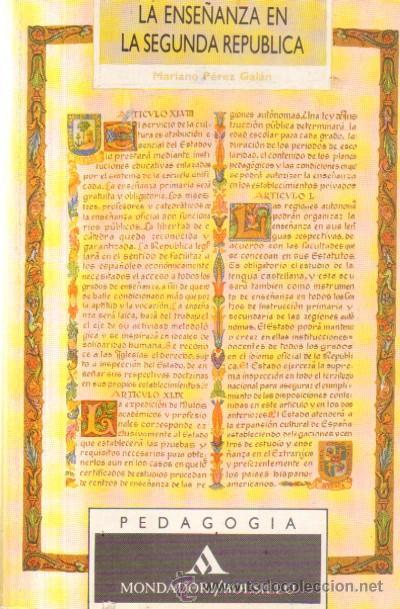 LA ENSEÑANZA EN
LA SEGUNDA REPUBLICA
Mariano Pérez Galán
ARTICULO XLVIII
El servicio de la cul-
tura es atribución e-
sencial del Estado y
lo prestará mediante insti-
tuciones educativas enlazadas
por el sistema de la escuela unifi-
cada. La enseñanza primaria será
gratuita y obligatoria. Los maes-
tros, profesores y catedráticos de
la enseñanza oficial son funciona-
rios públicos. La libertad de
cátedra queda reconocida y
garantizada. La República legis-
lará en el sentido de facilitar a
los españoles económicamente
necesitados el acceso a todos los
grados de enseñanza, a fin de que no
se halle condicionado más que por
la aptitud y la vocación. La enseñan-
za será laica, hará del trabajo el
eje de su actividad metodoló-
gica y se inspirará en ideales de
solidaridad humana. Se recono-
ce a las Iglesias el derecho, suje-
to a inspección del Estado, de en-
señar sus respectivas doctrinas
en sus propios establecimientos.
ARTICULO XLIX
La expedición de títulos
académicos y profesio-
nales corresponde ex-
clusivamente al Estado
que establecerá las pruebas y
requisitos necesarios para obte-
nerlos aun en los casos en que los
certificados de estudios procedan
de centros de enseñanza de las re-
giones autónomas. Una ley de Ins-
trucción pública determinará la
edad escolar para cada grado, la
duración de los periodos de esco-
laridad, el contenido de los planes
pedagógicos y las condiciones en que
se podrá autorizar la enseñanza
en los establecimientos privados
ARTICULO L
Las regiones autónomas
podrán organizar la
enseñanza en sus len-
guas respectivas, de
acuerdo con las facultades que
se concedan en sus Estatutos.
Es obligatorio el estudio de la
lengua castellana, y ésta se usará
también como instrumen-
to de enseñanza en todos los Cen-
tros de instrucción primaria y
secundaria de las regiones autó-
nomas. El Estado podrá mantene-
r o crear en ellas instituciones
docentes de todos los grados
en el idioma oficial de la Repúbli-
ca. El Estado ejercerá la supre-
ma inspección en todo el territorio
nacional para asegurar el cumpli-
miento de las disposiciones conte-
nidas en este artículo y en los dos
anteriores. El Estado atenderá a
la expansión cultural de España
estableciendo delegaciones y cen-
tros de estudio y ense-
ñanza en el Extranjero
y preferentemente en
los países hispano-
americanos.
PEDAGOGIA
MONDADORI
todocoleccion.net